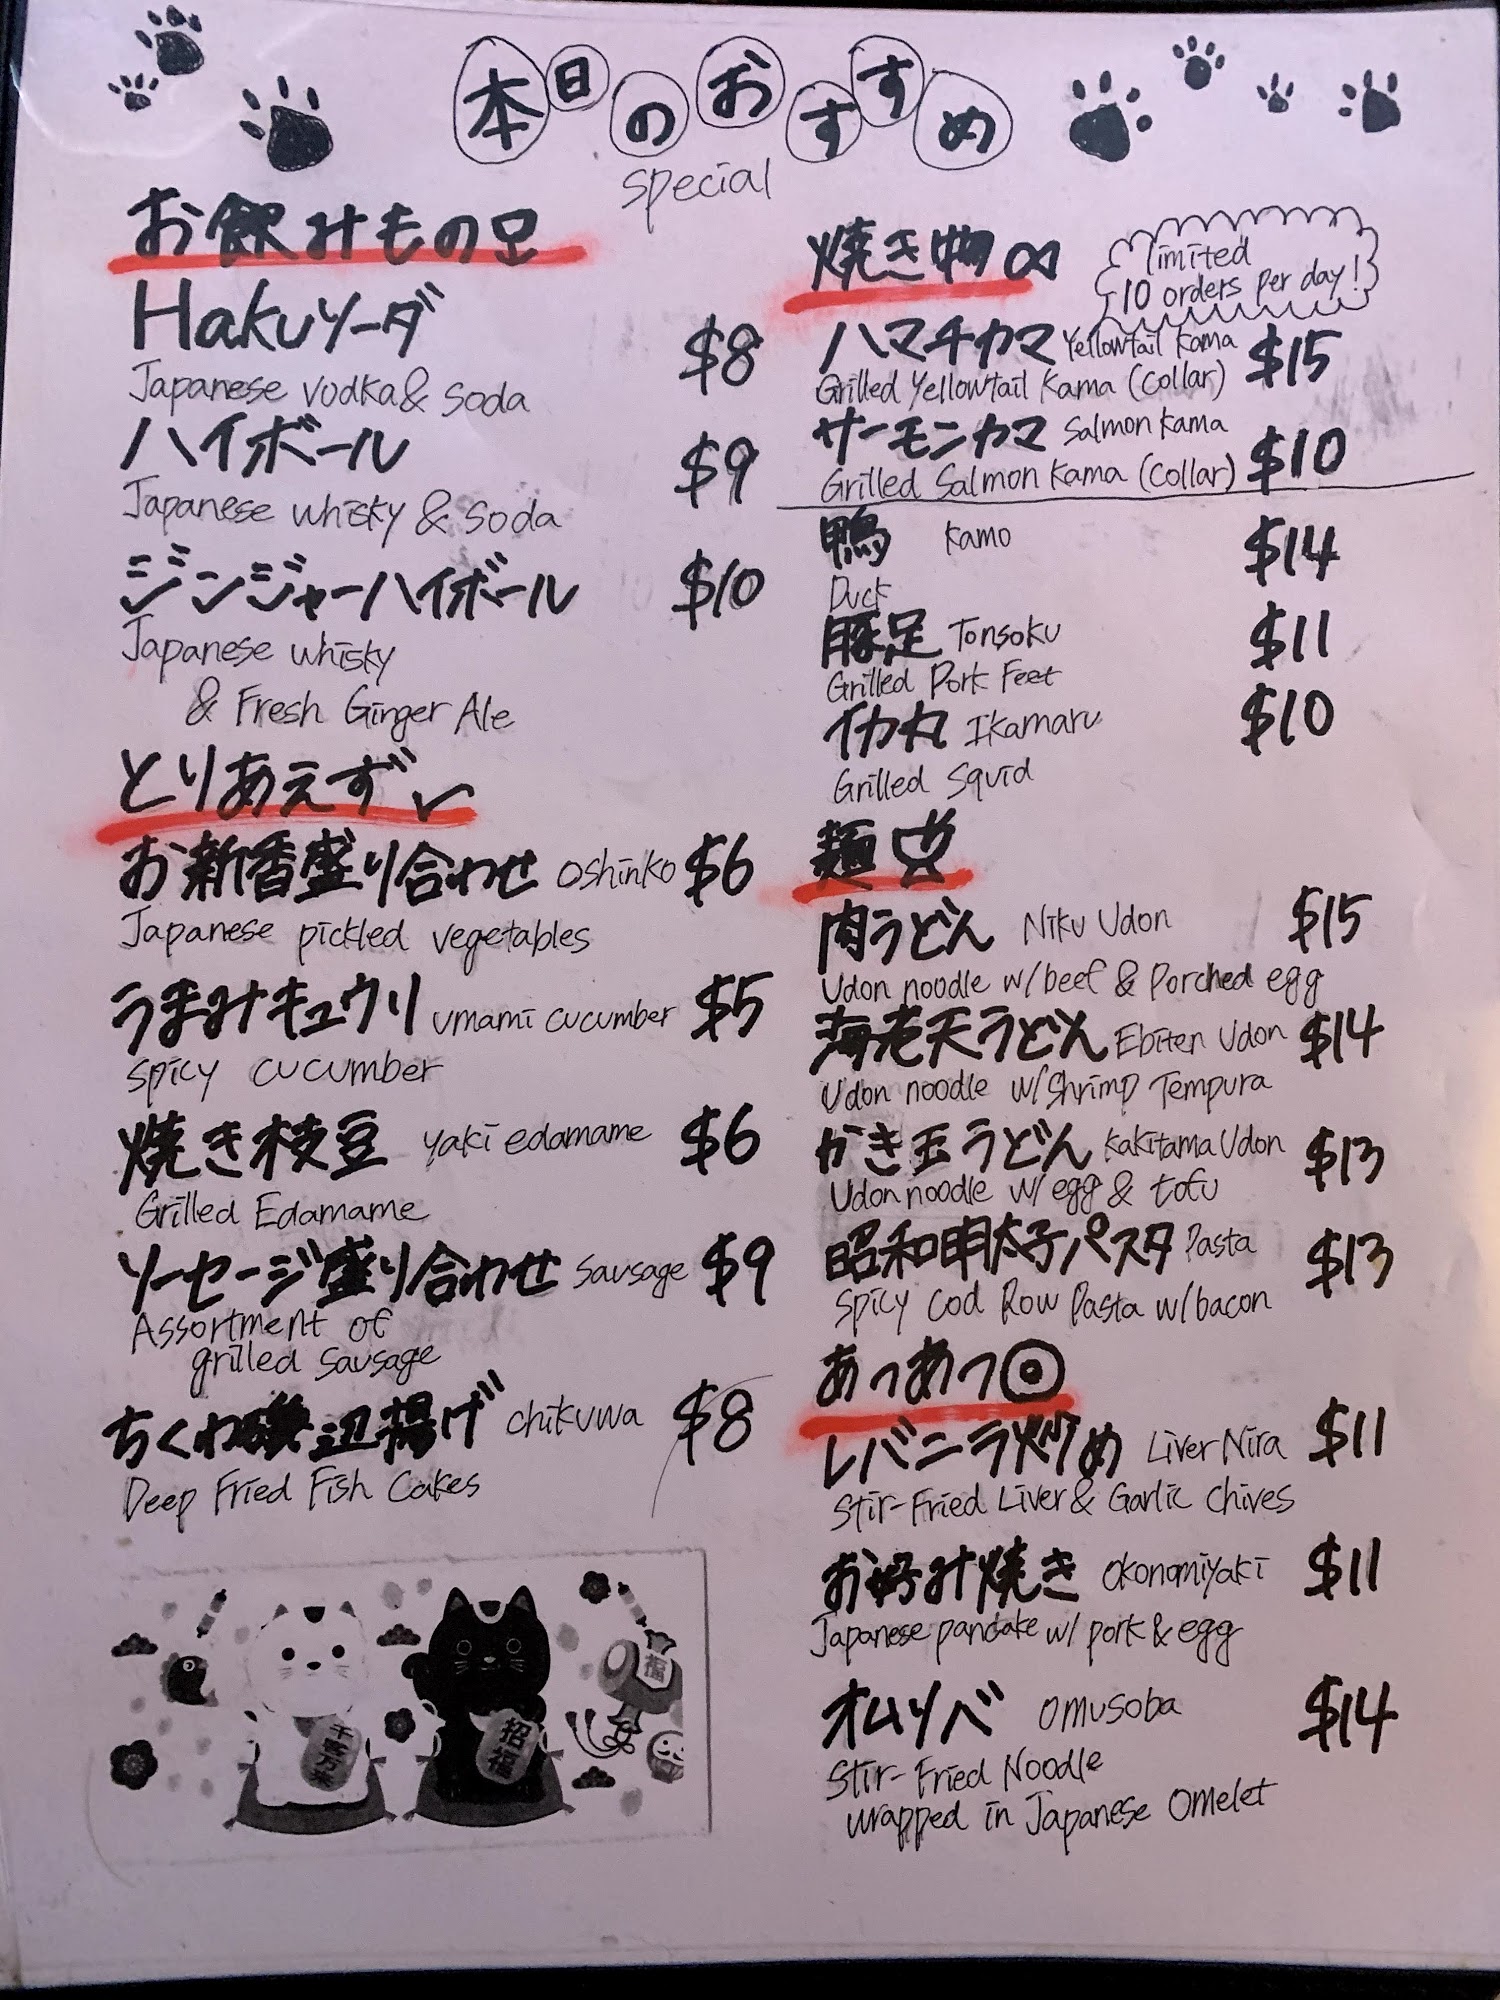 本日のおすすめ
special
お飲みもの
Hakuソーダ $8
Japanese vodka & soda
ハイボール $9
Japanese whisky & soda
ジンジャーハイボール $10
Japanese whisky
& Fresh Ginger Ale
とりあえず
お新香盛り合わせ oshinko $6
Japanese pickled vegetables
うまみキュウリ umami cucumber $5
spicy cucumber
焼き枝豆 yaki edamame $6
Grilled Edamame
ソーセージ盛り合わせ sausage $9
Assortment of
grilled sausage
ちくわ磯辺揚げ chikuwa $8
Deep Fried Fish Cakes
千客万来
招福
福
焼き物
limited
10 orders per day!
ハマチカマ Yellowtail Kama $15
Grilled Yellowtail Kama (collar)
サーモンカマ Salmon Kama $10
Grilled Salmon Kama (collar)
鴨 Kamo $14
Duck
豚足 Tonsoku $11
Grilled Pork Feet
イカ丸 Ikamaru $10
Grilled Squid
麺
肉うどん Niku Udon $15
Udon noodle w/beef & Porched egg
海老天うどん Ebiten Udon $14
Udon noodle w/shrimp Tempura
かき玉うどん Kakitama Udon $13
Udon noodle w/ egg & tofu
昭和明太子パスタ Pasta $13
Spicy Cod Row Pasta w/bacon
あつあつ
レバニラ炒め Liver Nira $11
Stir-Fried Liver & Garlic Chives
お好み焼き Okonomiyaki $11
Japanese pancake w/ pork & egg
オムソバ omusoba $14
Stir-Fried Noodle
wrapped in Japanese Omelet